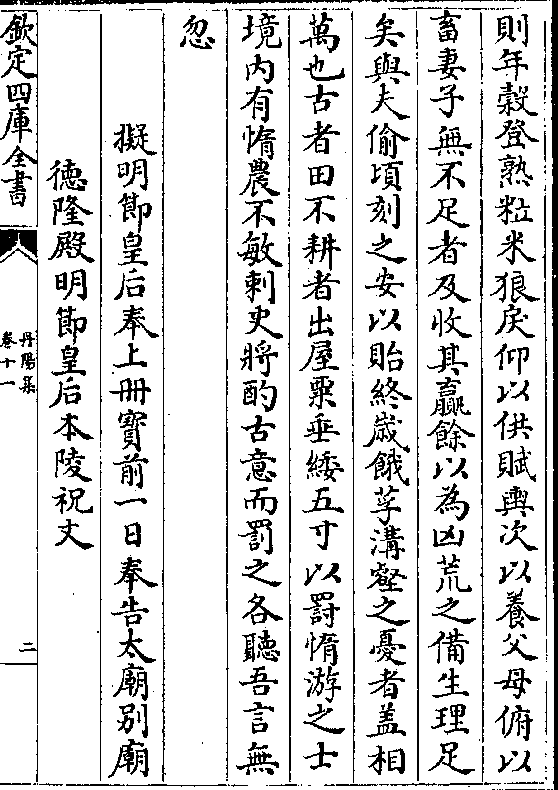 則年榖登熟粒米狼戾仰以供賦輿次以養父母俯以
畜妻子無不足者及收其贏餘以為凶荒之備生理足
矣與夫偷頃刻之安以貽終歲餓莩溝壑之憂者盖相
萬也古者田不耕者出屋粟垂緌五寸以罸惰游之士
境内有惰農不敏刺史將酌古意而罰之各聽吾言無
忽
擬明節皇后奉上冊寳前一日奉告太廟别廟
德隆殿明節皇后本陵祝文
欽定四庫全書
丹陽集
卷十一
二